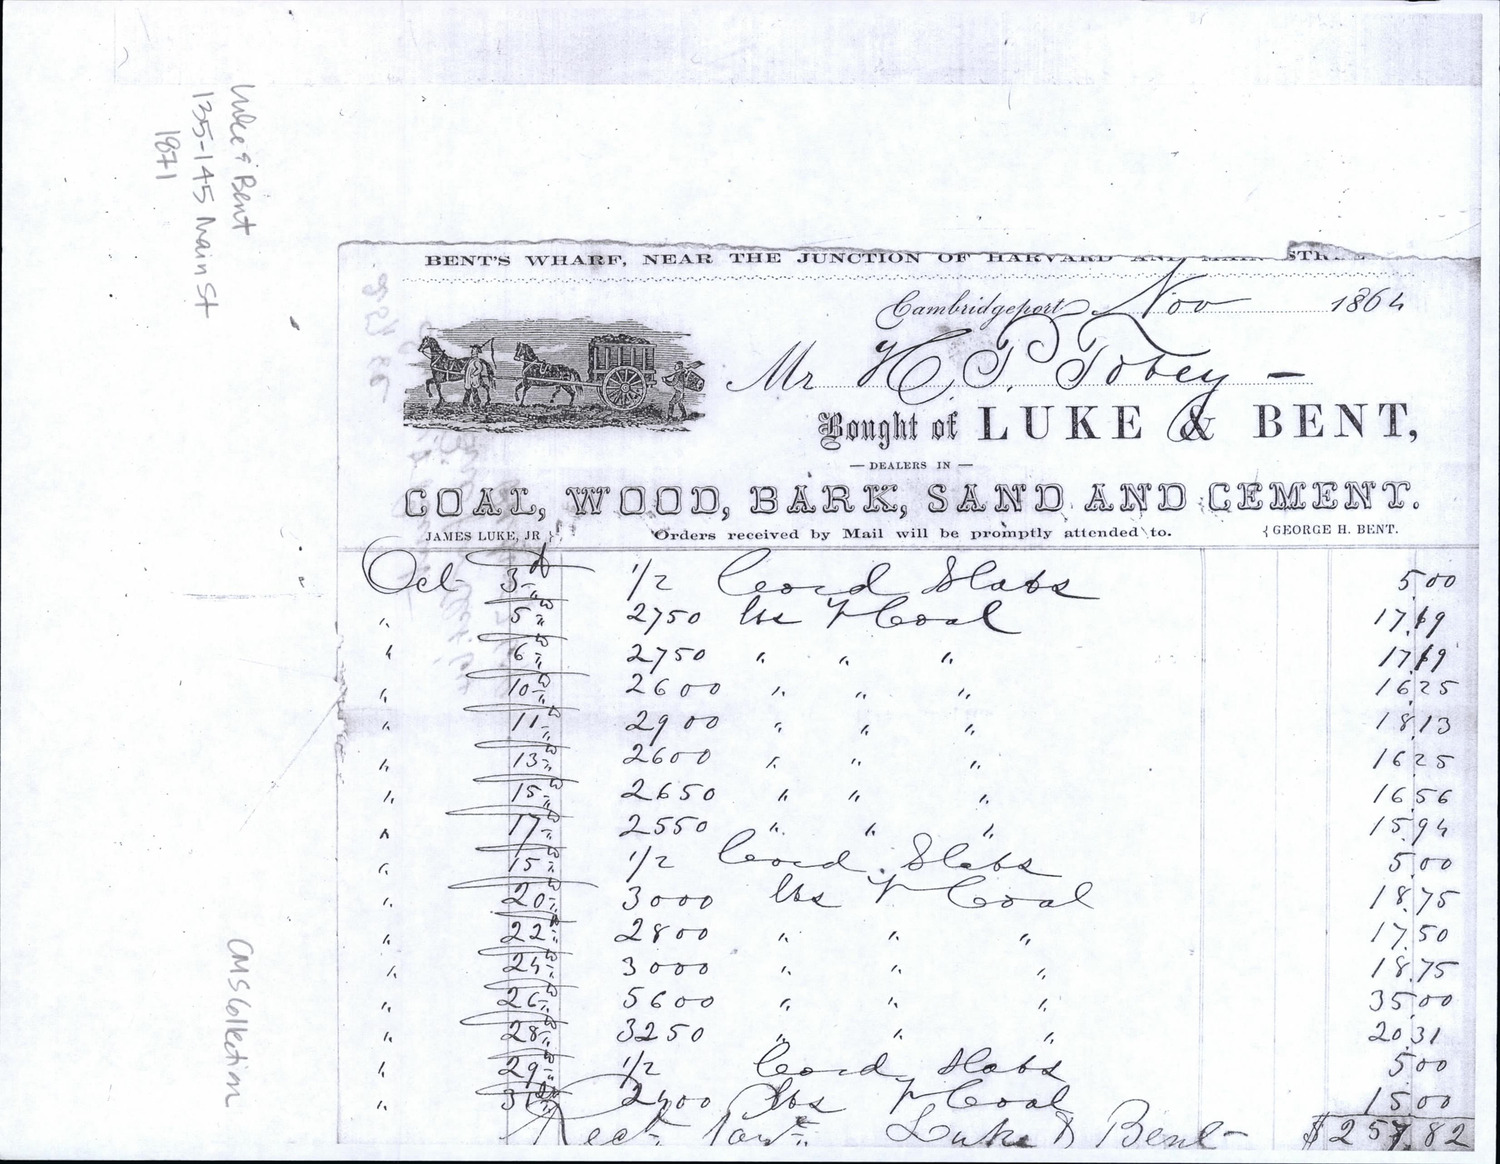 Luke & Bent
135-145 Main St
1871
CMS Collection
BENT'S WHARF, NEAR THE JUNCTION OF HARVARD AND MAIN STR
Cambridgeport Nov 1864
Mr H. P. Tobey —
Bought of LUKE & BENT,
— DEALERS IN —
COAL, WOOD, BARK, SAND AND CEMENT.
JAMES LUKE, JR } Orders received by Mail will be promptly attended to. { GEORGE H. BENT.
Oct 3d 1/2 Cord Slabs 5 00
" 5 2750 lbs F Coal 17.19
" 6 2750 " " " 17.19
" 10 2600 " " " 16 25
" 11 2900 " " " 18 13
" 13 2600 " " " 16 25
" 15 2650 " " " 16 56
" 17 2550 " " " 15 94
" 15 1/2 Cord Slabs 5 00
" 20 3000 lbs F Coal 18.75
" 22 2800 " " " 17.50
" 24 3000 " " " 18.75
" 26 5600 " " " 35 00
" 28 3250 " " " 20 31
" 29 1/2 Cord Slabs 5 00
" 31 2400 lbs F Coal 15 00
Rect. Payt. Luke & Bent $257.82